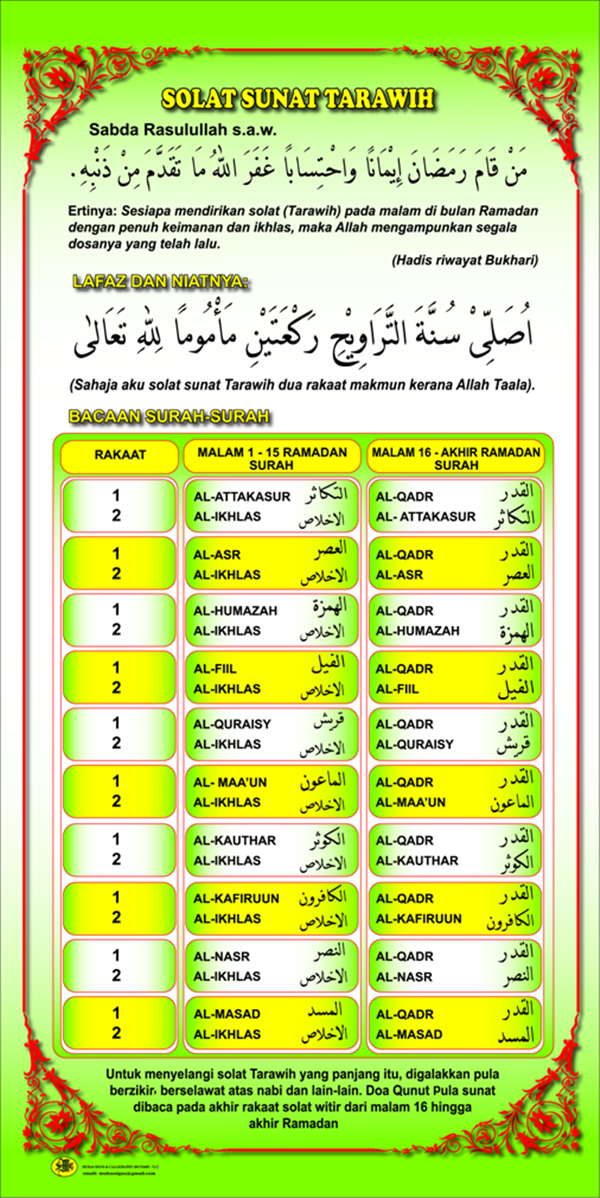 SOLAT SUNAT TARAWIH
Sabda Rasulullah s.a.w.
مَنْ قَامَ رَمَضَانَ إِيْمَانًا وَاحْتِسَابًا غَفَرَ اللهُ مَا تَقَدَّمَ مِنْ ذَنْبِهِ.
Ertinya: Sesiapa mendirikan solat (Tarawih) pada malam di bulan Ramadan
dengan penuh keimanan dan ikhlas, maka Allah mengampunkan segala
dosanya yang telah lalu.
(Hadis riwayat Bukhari)
LAFAZ DAN NIATNYA:
اُصَلِّىْ سُنَّةَ التَّرَاوِيْحِ رَكْعَتَيْنِ مَأْمُومًا لِلهِ تَعَالىٰ
(Sahaja aku solat sunat Tarawih dua rakaat makmun kerana Allah Taala).
BACAAN SURAH-SURAH
RAKAAT MALAM 1 - 15 RAMADAN SURAH MALAM 16 - AKHIR RAMADAN SURAH
1 AL-ATTAKASUR التكاثر AL-QADR القدر
2 AL-IKHLAS الاخلاص AL- ATTAKASUR التكاثر
1 AL-ASR العصر AL-QADR القدر
2 AL-IKHLAS الاخلاص AL-ASR العصر
1 AL-HUMAZAH الهمزة AL-QADR القدر
2 AL-IKHLAS الاخلاص AL-HUMAZAH الهمزة
1 AL-FIIL الفيل AL-QADR القدر
2 AL-IKHLAS الاخلاص AL-FIIL الفيل
1 AL-QURAISY قريش AL-QADR القدر
2 AL-IKHLAS الاخلاص AL-QURAISY قريش
1 AL- MAA'UN الماعون AL-QADR القدر
2 AL-IKHLAS الاخلاص AL-MAA'UN الماعون
1 AL-KAUTHAR الكوثر AL-QADR القدر
2 AL-IKHLAS الاخلاص AL-KAUTHAR الكوثر
1 AL-KAFIRUUN الكافرون AL-QADR القدر
2 AL-IKHLAS الاخلاص AL-KAFIRUUN الكافرون
1 AL-NASR النصر AL-QADR القدر
2 AL-IKHLAS الاخلاص AL-NASR النصر
1 AL-MASAD المسد AL-QADR القدر
2 AL-IKHLAS الاخلاص AL-MASAD المسد
Untuk menyelangi solat Tarawih yang panjang itu, digalakkan pula
berzikir, berselawat atas nabi dan lain-lain. Doa Qunut Pula sunat
dibaca pada akhir rakaat solat witir dari malam 16 hingga
akhir Ramadan